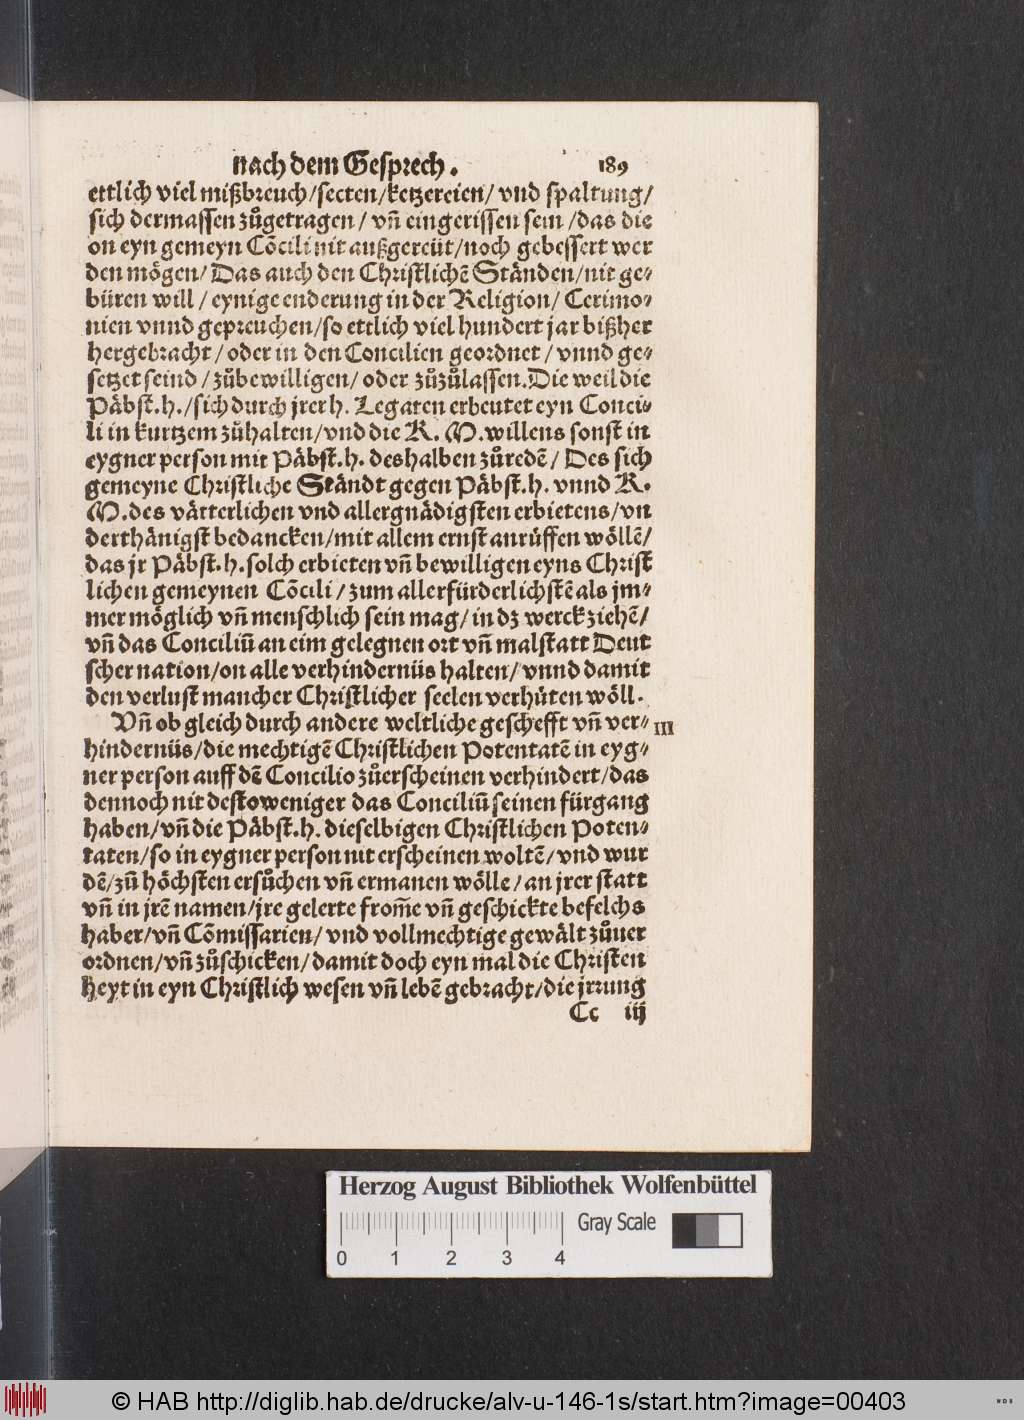 nach dem Gesprech. 189
ettlich viel mißbreuch/secten/ketzereien/ vnd spaltung/
sich dermassen zůgetragen/ vñ eingerissen sein/das die
on eyn gemeyn Cõcili nit außgereüt/noch gebessert wer
den mögen/ Das auch den Christlichẽ Ständen/nit ge⸗
büren will/ eynige enderung in der Religion/ Cerimo⸗
nien vnnd gepreuchen/so ettlich viel hundert jar bißher
hergebracht/ oder in den Concilien geordnet/ vnnd ge⸗
setzet seind/ zůbewilligen/ oder zůzůlassen. Die weil die
Päbst.h./sich durch jrer h. Legaten erbeutet eyn Conci⸗
li in kurtzem zůhalten/vnd die K. M. willens sonst in
eygner person mit Päbst.h. deshalben zůredẽ/ Des sich
gemeyne Christliche Ständt gegen Päbst.h. vnnd K.
M. des vätterlichen vnd allergnädigsten erbietens/vn
derthänigst bedancken/mit allem ernst anrůffen wöllẽ/
das jr Päbst.h. solch erbieten vñ bewilligen eyns Christ
lichen gemeynen Cõcili/ zum allerfürderlichstẽ als jm⸗
mer möglich vñ menschlich sein mag/ in dz werck ziehẽ/
vñ das Conciliũ an eim gelegnen ort vñ malstatt Deut
scher nation/on alle verhindernüs halten/ vnnd damit
den verlust mancher Christlicher seelen verhüten wöll.
Vñ ob gleich durch andere weltliche geschefft vñ ver⸗ III
hindernüs/die mechtigẽ Christlichen Potentatẽ in eyg⸗
ner person auff dẽ Concilio zůerscheinen verhindert/das
dennoch nit destoweniger das Conciliũ seinen fürgang
haben/vñ die Päbst.h. dieselbigen Christlichen Poten⸗
taten/so in eygner person nit erscheinen woltẽ/vnd wur
dẽ/zũ höchsten ersůchen vñ ermanen wölle/an jrer statt
vñ in jrẽ namen/jre gelerte from̃e vñ geschickte befelchs
haber/vñ Cõmissarien/ vnd vollmechtige gewält zůuer
ordnen/vñ zůschicken/damit doch eyn mal die Christen
heyt in eyn Christlich wesen vñ lebẽ gebracht/die jrrung
Cc iij
Herzog August Bibliothek Wolfenbüttel
Gray Scale
0 1 2 3 4
© HAB http://diglib.hab.de/drucke/alv-u-146-1s/start.htm?image=00403